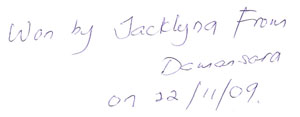 Won by Jacklyna From
Damansara
on 22/11/09.